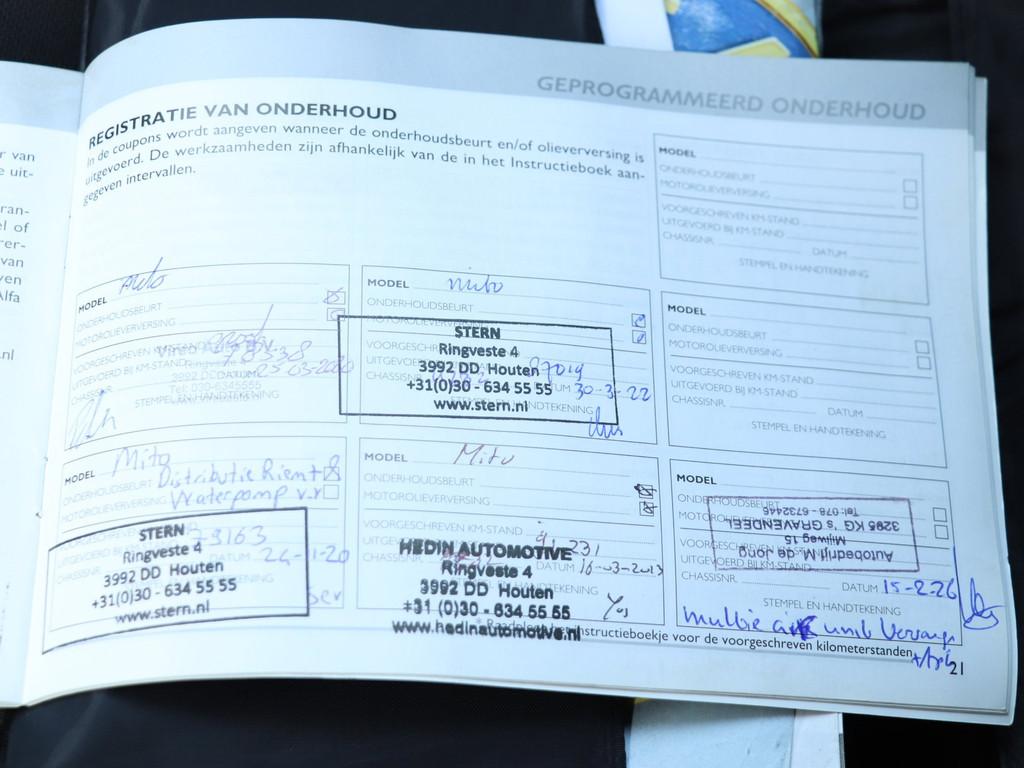 r van
e uit-
ran-
el of
rer-
van
ven
Alfa
.nl
GEPROGRAMMEERD ONDERHOUD
REGISTRATIE VAN ONDERHOUD
In de coupons wordt aangeven wanneer de onderhoudsbeurt en/of olieverversing is
uitgevoerd. De werkzaamheden zijn afhankelijk van de in het Instructieboek aan-
gegeven intervallen.
MODEL
ONDERHOUDSBEURT
MOTOROLIEVERVERSING
VOORGESCHREVEN KM-STAND
UITGEVOERD BIJ KM-STAND
CHASSISNR. DATUM
STEMPEL EN HANDTEKENING
MODEL
ONDERHOUDSBEURT
MOTOROLIEVERVERSING
VOORGESCHREVEN KM-STAND
UITGEVOERD BIJ KM-STAND
DATUM 25-03-2020
STEMPEL EN HANDTEKENING
MODEL mito
ONDERHOUDSBEURT
MOTOROLIEVERVERSING
VOORGESCHR
UITGEVOE 87019
CHASSISN DATUM 30-3-22
STEMPEL EN HANDTEKENING
STERN
Ringveste 4
3992 DD Houten
+31(0)30 - 634 55 55
www.stern.nl
MODEL
ONDERHOUDSBEURT
MOTOROLIEVERVERSING
VOORGESCHREVEN KM-STAND
UITGEVOERD BIJ KM-STAND
CHASSISNR. DATUM
STEMPEL EN HANDTEKENING
MODEL Mito
ONDERHOUDSBEURT Distributie Riem +
MOTOROLIEVERVERSING Waterpomp v.v
79163
DATUM 24-11-20
STERN
Ringveste 4
3992 DD Houten
+31(0)30 - 634 55 55
www.stern.nl
MODEL Mito
ONDERHOUDSBEURT
MOTOROLIEVERVERSING
VOORGESCHREVEN KM-STAND
91.231
DATUM 16-03-2023
HEDIN AUTOMOTIVE
Ringveste 4
3992 DD Houten
+31 (0)30 - 634 55 55
www.hedinautomotive.nl
MODEL
ONDERHOUDSBEURT
VOORGESCHREVEN KM-STAND
UITGEVOERD BIJ KM-STAND
CHASSISNR. DATUM 15-2-26
STEMPEL EN HANDTEKENING
Autobedrijf M. de Jong
Mijlweg 15
3295 KG 's GRAVENDEEL
Tel: 078 - 6732446
* Raadpleeg het instructieboekje voor de voorgeschreven kilometerstanden
21